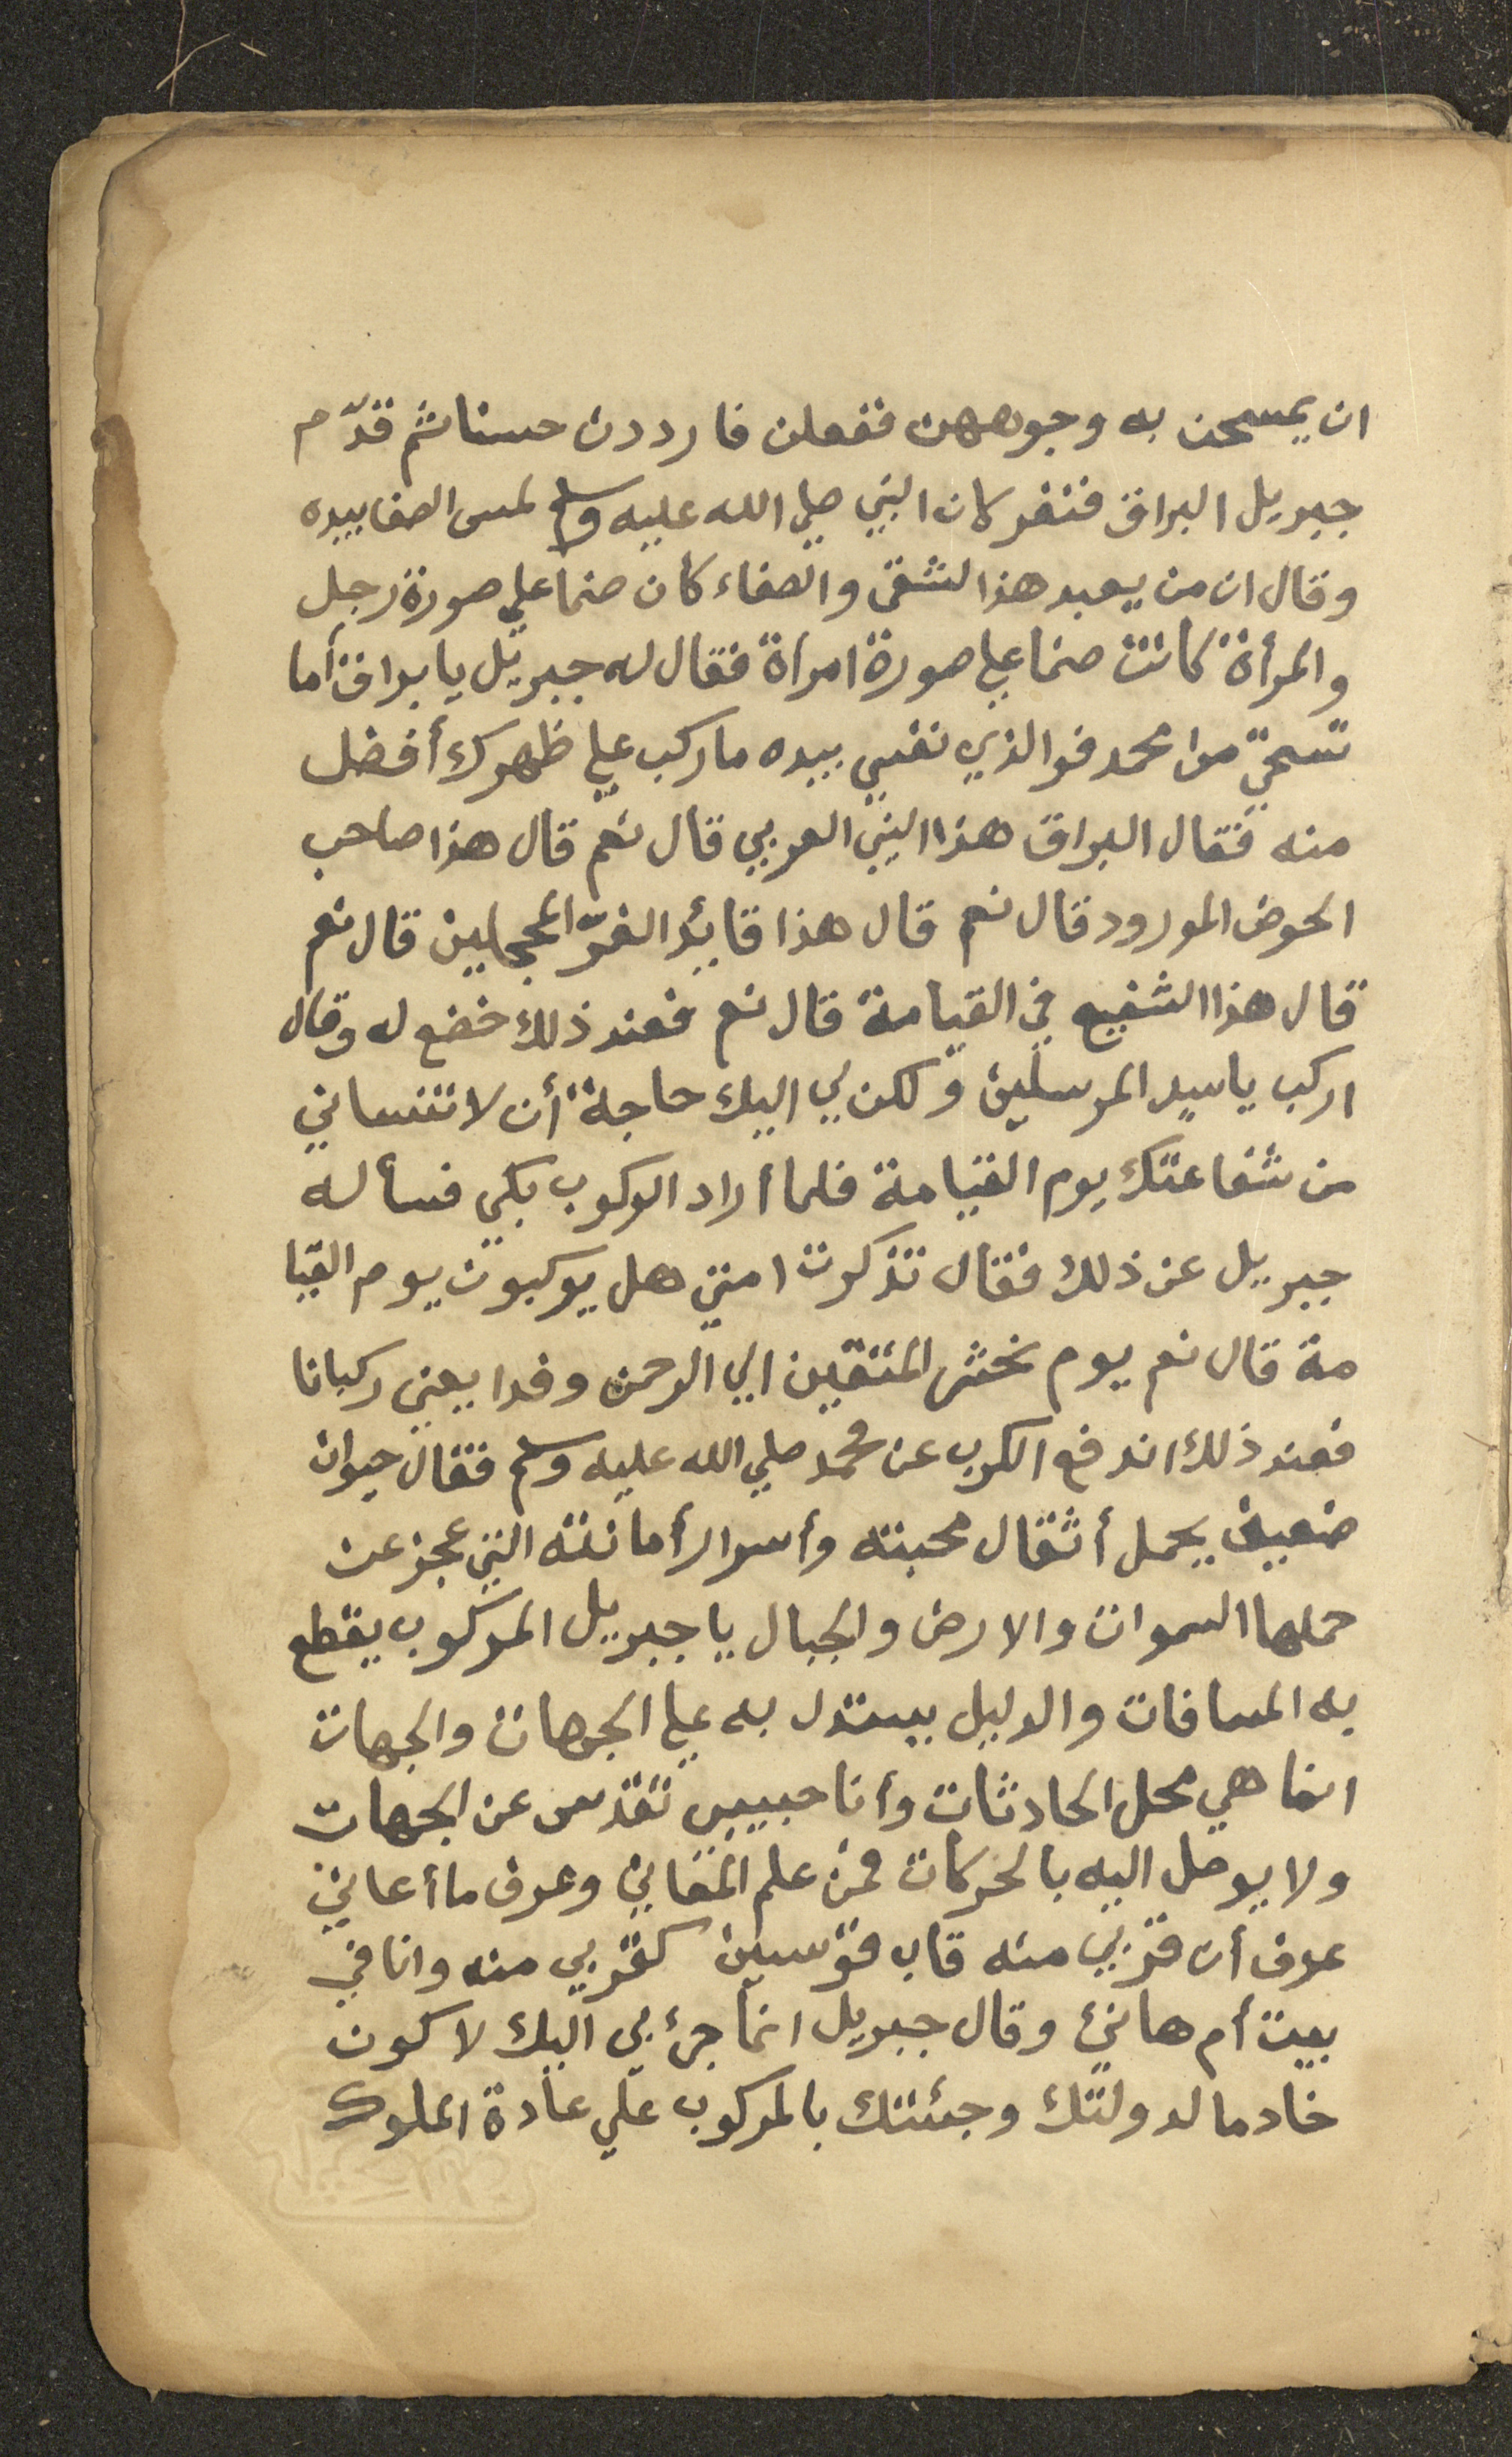 ان يمسحن به وجوههن ففعلن فارددن حسنا ثم قدّم
جبريل البراق فنفر لان النبي صلي الله عليه وسلم لمس الصفا بيده
وقال ان من يعبد هذا لشقي والصفاء كان صنما علي صورة رجل
والمرأة كانت صنما علي صورة امرأة فقال له جبريل يا براق أما
تسحيّ من محمد فوالذي نفسي بيده ما ركب علي ظهرك أفضل
منه فقال البراق هذا النبي العربي قال نعم قال هذا صاحب
الحوض المورود قال نعم قال هذا قائد الغرّ المحجلين قال نعم
قال هذا الشفيع في القيامة قال نعم فعند ذلك خضع له وقال
اركب يا سيد المرسلين ولكن لي اليك حاجة أن لا تنساني
من شفاعتك يوم القيامة فلما أراد الركوب بكي فسأله
جبريل عن ذلك فقال تذكرت امتي هل يركبون يوم القيا
مة قال نعم يوم نحشر المتقين الي الرحمن وفدا يعني ركبانا
فعند ذلك اندفع الكرب عن محمد صلي الله عليه وسلم فقال حيوان
ضعيف يحمل أثقال محبته وأسرار أمانته التي عجز عن
حملها السموات والارض والجبال يا جبريل المركوب يقطع
به المسافات والدليل يستدل به علي الجهات والجهات
انما هي محل الحادثات وأنا حبيبي تقدس عن الجهات
ولا يوصل اليه بالحركات فمن علم المعاني وعرف ما أعاني
عرف أن قربي منه قاب قوسين كقربي منه وانا في
بيت أم هانئ وقال جبريل انما جئ بي اليك لاكون
خادما لدولتك وجئتك بالمركوب علي عادة الملوك